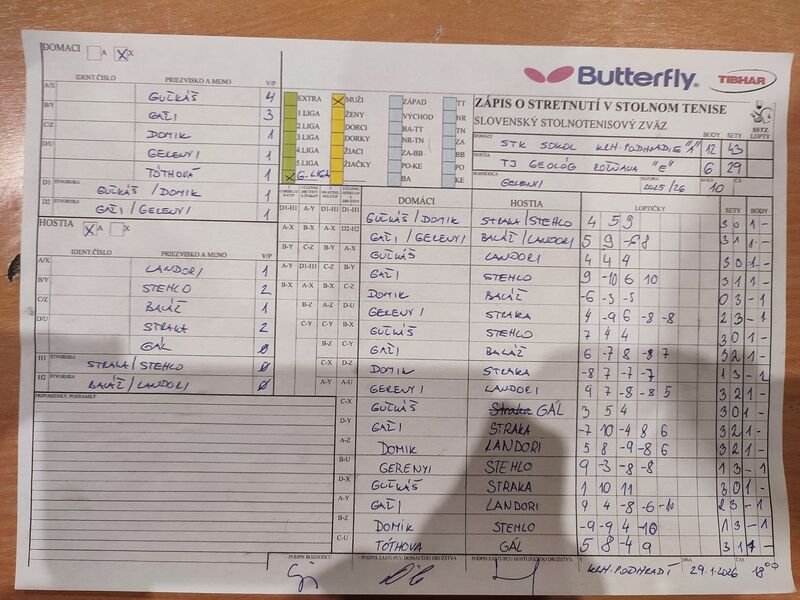 DOMÁCI A X
IDENT.ČÍSLO PRIEZVISKO A MENO V/P
A/X GUĽKÁŠ 4
B/Y GAŽI 3
C/Z DOMIK 1
D/U GERENYI 1
TÓTHOVÁ 1
D1 ŠTVORHRA GUĽKÁŠ / DOMIK 1
D2 ŠTVORHRA GAŽI / GERENYI 1
HOSTIA A X
IDENT.ČÍSLO PRIEZVISKO A MENO V/P
A/X LANDORI 1
B/Y STEHLO 2
C/Z BALÁŽ 1
D/U STRAKA 2
GÁL 0
H1 ŠTVORHRA STRAKA/STEHLO 0
H2 ŠTVORHRA BALÁŽ/LANDORI 0
PRIPOMIENKY, POZNÁMKY
EXTRA
1.LIGA
2.LIGA
3.LIGA
4.LIGA
5.LIGA
6.LIGA
MUŽI
ŽENY
DORCI
DORKY
ŽIACI
ŽIAČKY
ZÁPAD
VÝCHOD
BA-TT
NR-TN
ZA-BB
PO-KE
BA
TT
NR
TN
ZA
BB
PO
KE
Butterfly
TIBHAR
ZÁPIS O STRETNUTÍ V STOLNOM TENISE
SLOVENSKÝ STOLNOTENISOVÝ ZVÄZ
BODY SETY SSTZ LOPTY
DOMÁCI STK SOKOL KRH. PODHRADIE "A" 12 43
HOSTIA TJ GEOLÓG ROŽŇAVA "E" 6 29
GERENYI 2025/26 10
DOMÁCI HOSTIA LOPTIČKY SETY BODY
D1-H1 A-Y D1-H1 D1-H1 GUĽKÁŠ/DOMIK STRAKA/STEHLO 4 5 9 3 0 1 -
A-X B-X A-X D2-H2 GAŽI / GERENYI BALÁŽ/LANDORI 5 9 -6 8 3 1 1 -
B-Y C-Z B-Y A-X GUĽKÁŠ LANDORI 4 4 4 3 0 1 -
A-Y D1-H1 C-Z B-Y GAŽI STEHLO 9 -10 6 10 3 1 1 -
B-X A-X B-X C-Z DOMIK BALÁŽ -6 -3 -5 0 3 - 1
B-Z A-Z D-U GERENYI STRAKA 4 -9 6 -8 -8 2 3 - 1
C-Y C-Y B-X GUĽKÁŠ STEHLO 7 4 4 3 0 1 -
B-Z C-Y GAŽI BALÁŽ 6 -7 8 -8 7 3 2 1 -
C-X D-Z DOMIK STRAKA -8 7 -7 -7 1 3 - 1
A-Y A-U GERENYI LANDORI 9 7 -8 -8 5 3 2 1 -
C-X GUĽKÁŠ Straka GÁL 3 5 4 3 0 1 -
D-Y GAŽI STRAKA -7 10 -4 8 6 3 2 1 -
A-Z DOMIK LANDORI 5 8 -9 -8 6 3 2 1 -
B-U GERENYI STEHLO 9 -3 -8 -8 1 3 - 1
D-X GUĽKÁŠ STRAKA 1 10 11 3 0 1 -
A-Y GAŽI LANDORI 9 4 -8 -6 -10 2 3 - 1
B-Z DOMIK STEHLO -9 -9 4 -10 1 3 - 1
C-U TÓTHOVA GÁL 5 8 -4 9 3 1 1 -
PODPIS ROZHODCU PODPIS ZÁSTUPCU DOMÁCEHO DRUŽSTVA PODPIS ZÁSTUPCU HOSŤUJÚCEHO DRUŽSTVA V DŇA ČAS
KRH. PODHRADÍ 29.1.2026 18 00